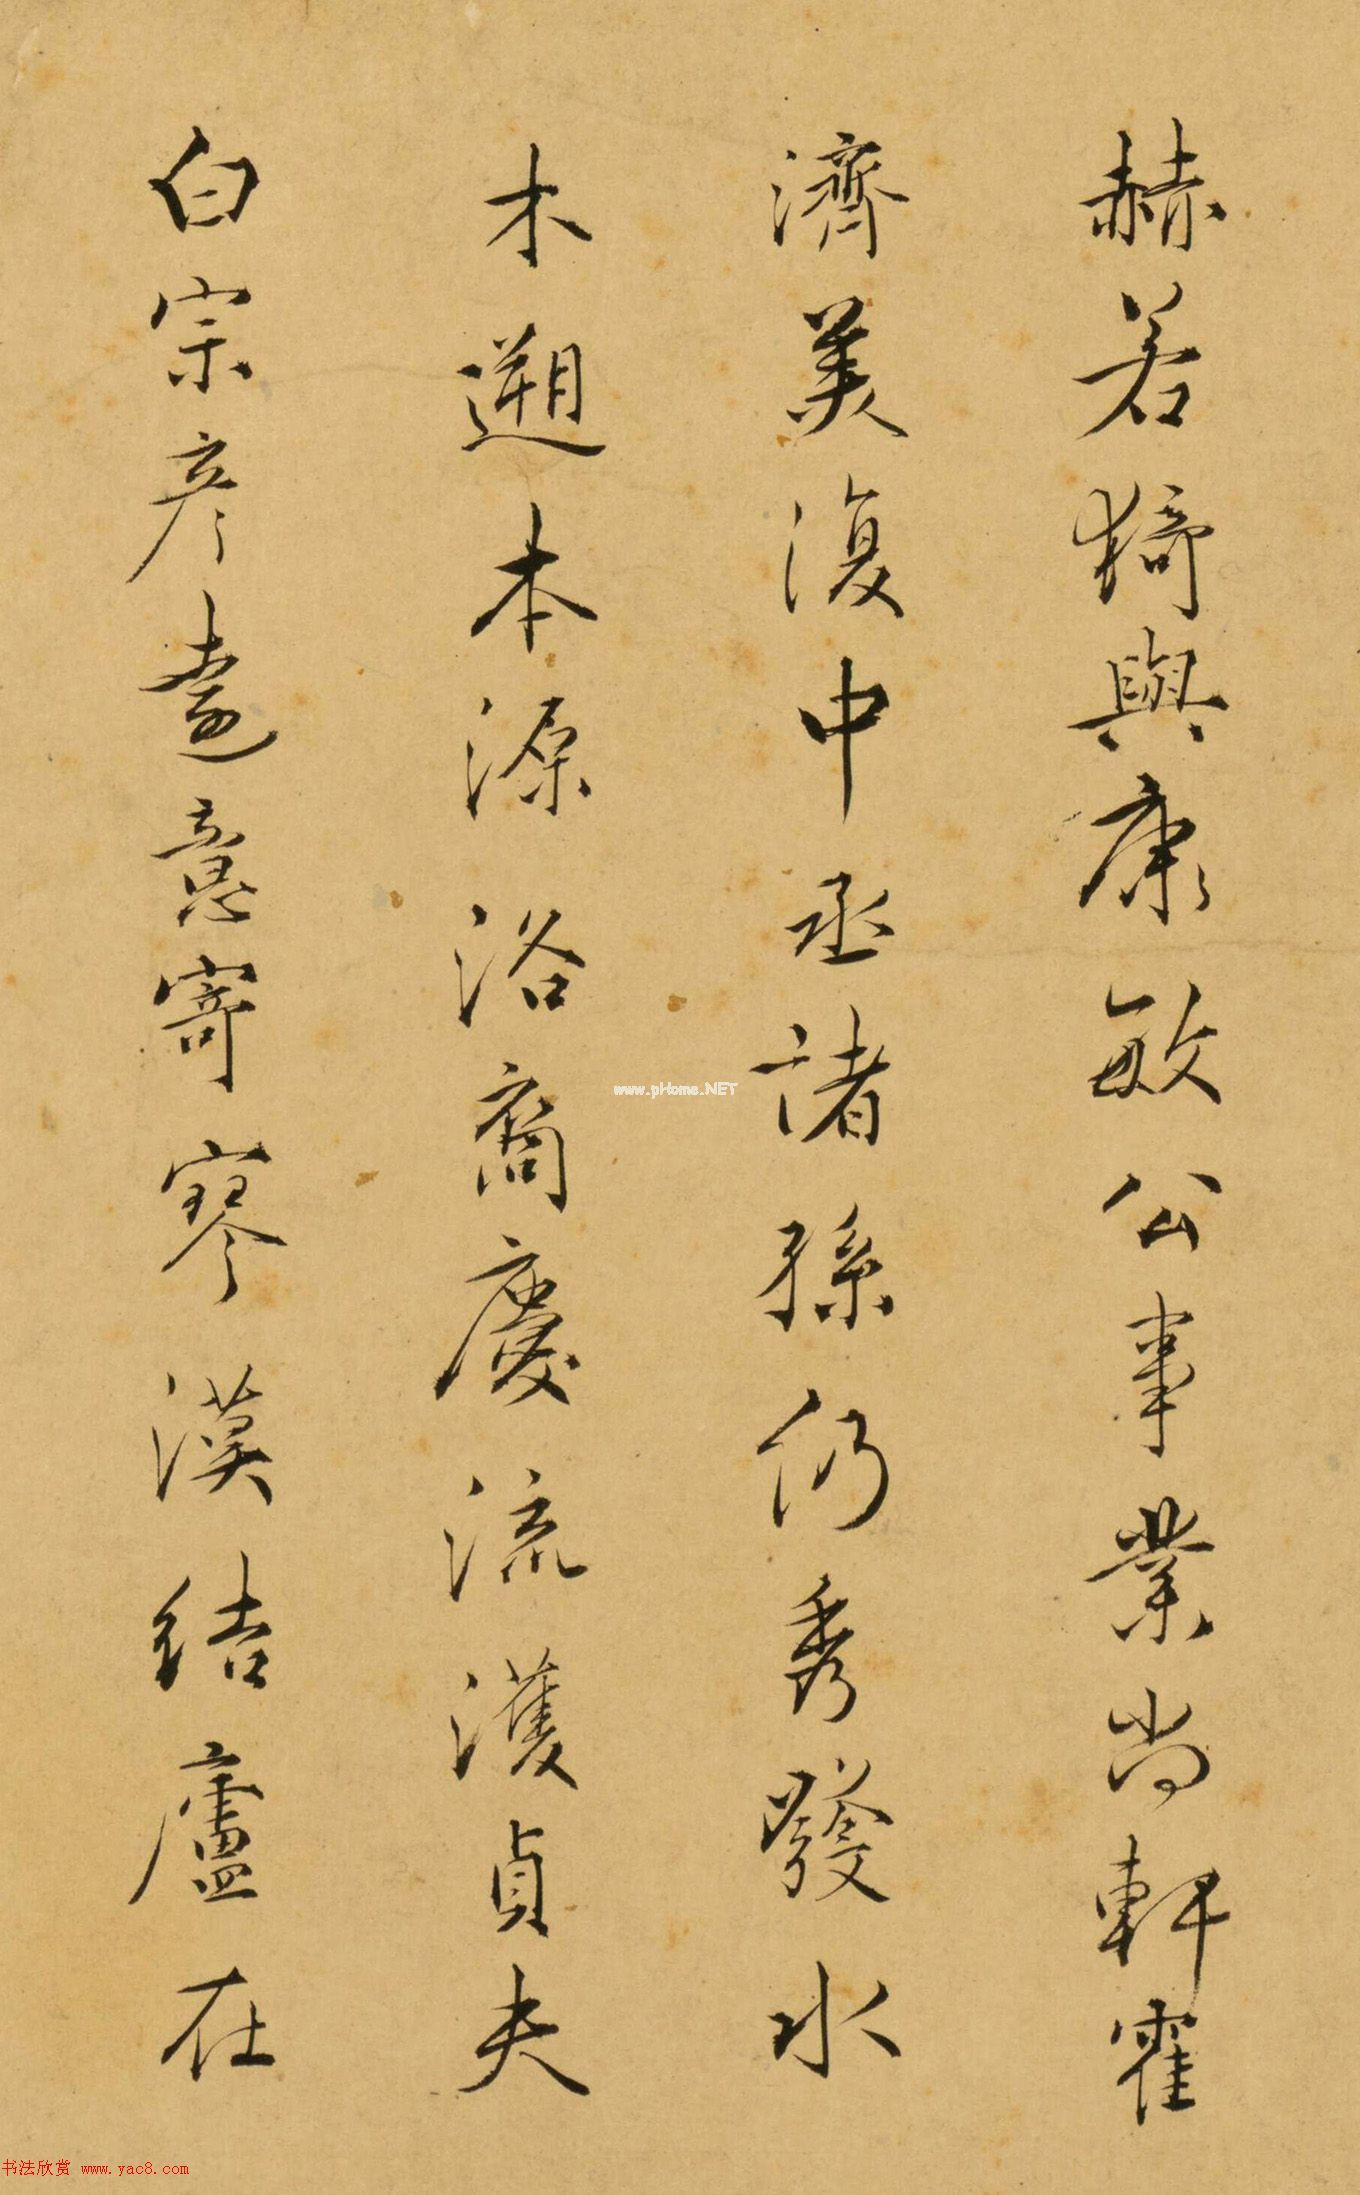 赫若猗與康敏公事業尚軒霍
濟美復中丞諸孫仍秀發水
木遡本源浴裔慶流濩貞夫
白宗彥遠意寄寥漠結廬在
www.pHome.NET
书法欣赏 www.yac8.com